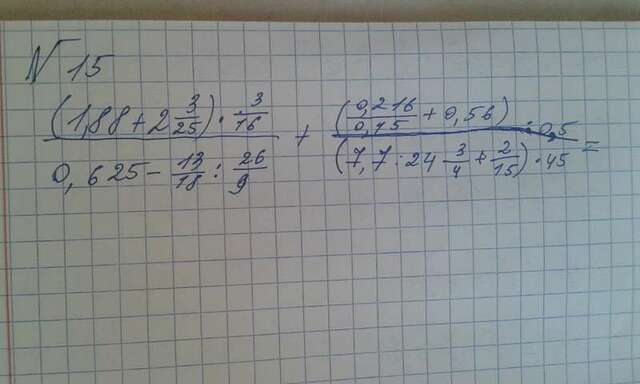 № 15
(1,88 + 2 3/25) · 3/16 / 0,625 - 13/18 : 26/9 + (0,216/0,15 + 0,56) : 0,5 / (7,7 : 24 3/4 + 2/15) · 45 =